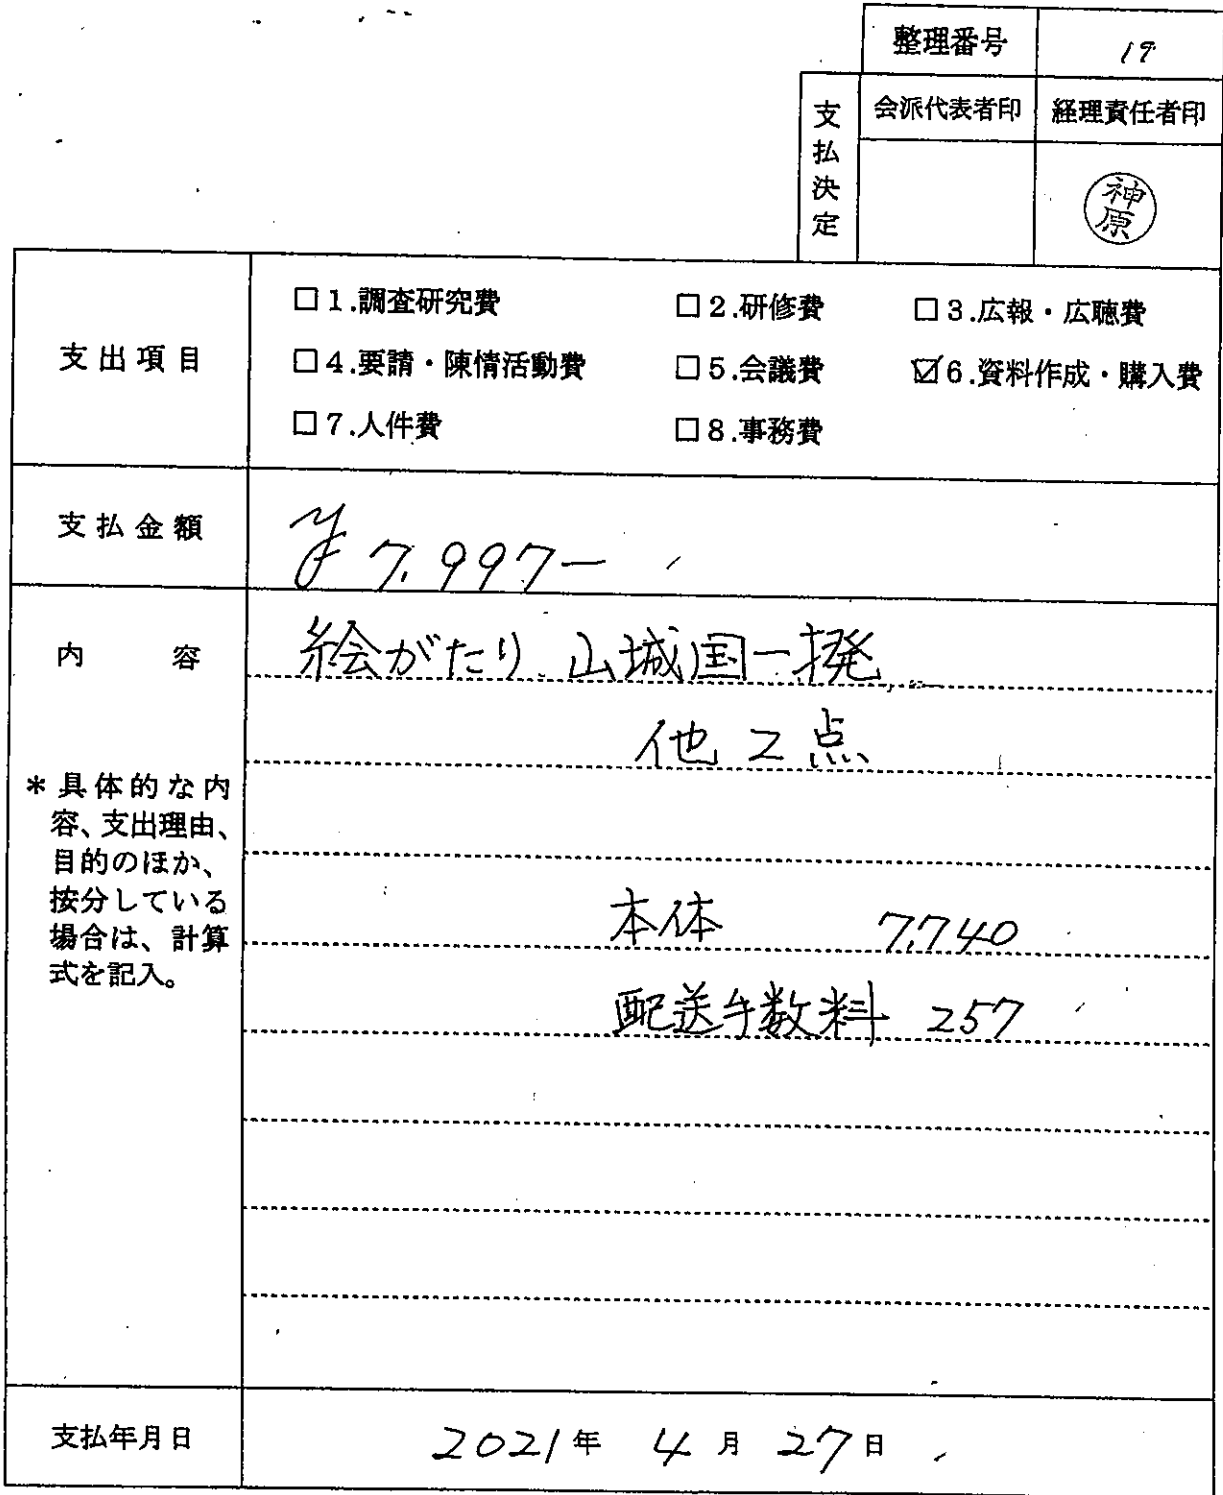 整理番号 19
支払決定 会派代表者印 経理責任者印
神原
支出項目
□1.調査研究費 □2.研修費 □3.広報・広聴費
□4.要請・陳情活動費 □5.会議費 ☑6.資料作成・購入費
□7.人件費 □8.事務費
支払金額 ¥7,997-
内容 絵がたり 山城国一揆
他2点
*具体的な内容、支出理由、目的のほか、按分している場合は、計算式を記入。
本体 7,740
配送手数料 257
支払年月日 2021年 4月 27日